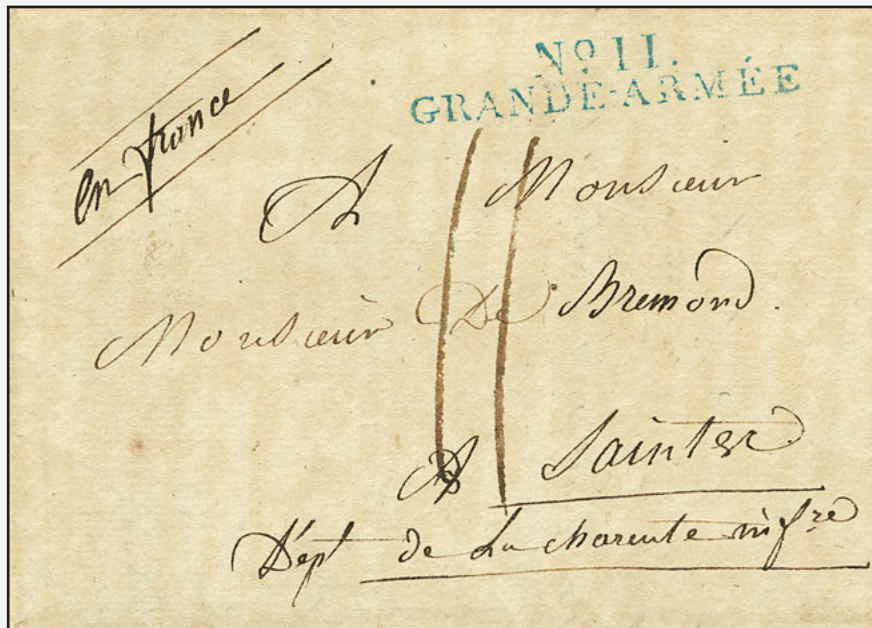 en france
No 11.
GRANDE-ARMÉE
A Monsieur
Monsieur De Bremond.
A Saintes
Dépt de La charente infre
11